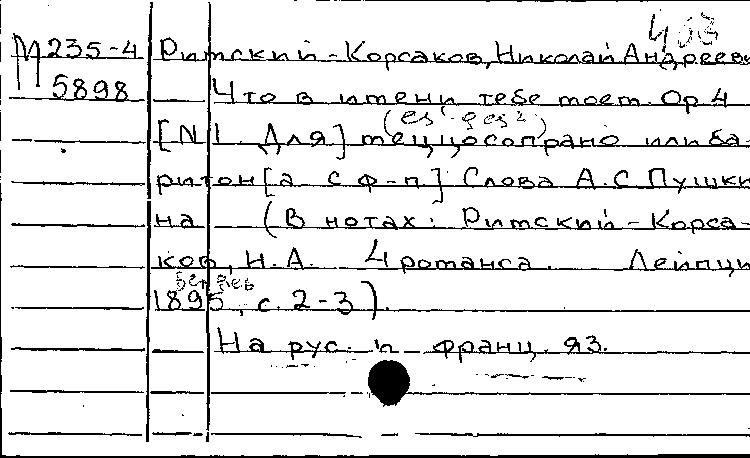 403
М 235-4 Римский-Корсаков, Николай Андреев
5898 Что в имени тебе моем. Ор 4
(es¹-ges²)
[N 1. Для] меццосопрано или ба-
ритон [а с ф-п] Слова А.С Пушки
на (В нотах: Римский-Корса-
ков, Н.А. 4 романса Лейпци
Беляев
1895, с. 2-3).
На рус. и франц. яз.